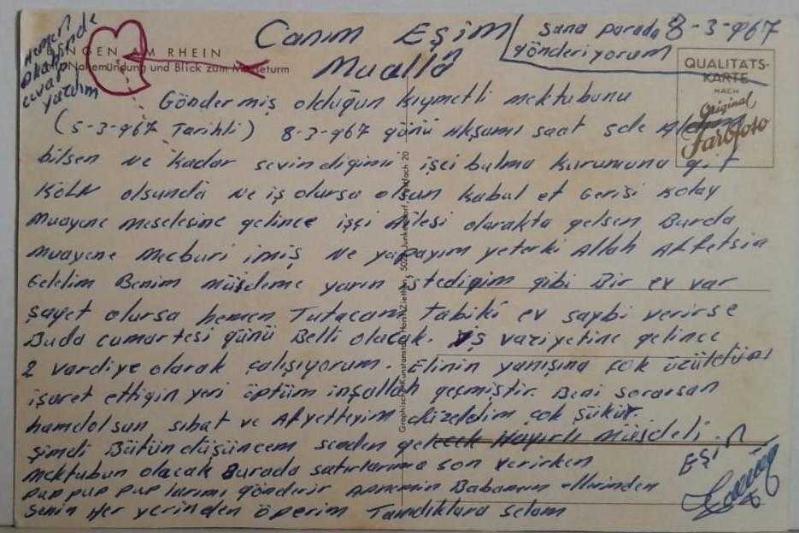 Hemen
akabinde
cevap
yazdım
BINGEN AM RHEIN
Nahemündung und Blick zum Mäuseturm
Canım Eşim
Muallâ
Sana parada 8-3-967
gönderiyorum
QUALITATS-
KARTE
NACH
Original
Farbfoto
Göndermiş olduğun kıymetli mektubunu
(5-3-967 Tarihli) 8-3-967 günü Akşamı saat 5de Aldım
bilsen Ne kadar sevindiğimi işçi bulma kurumuna git
KÖLN olsunda Ne iş olursa olsun kabul et Gerisi kolay
Muayene Meselesine gelince işçi Ailesi olarakta gelsen Burda
muayene Mecburi imiş Ne yapayım yeterki Allah Affetsin
Gelelim Benim Müjdeme yarın istediğim gibi Bir ev var
şayet olursa hemen Tutacam tabiki ev saybi verirse
Buda cumartesi günü Belli olacak. iş vaziyetine gelince
2 vardiye olarak çalışıyorum. Elinin yanışına çok üzüldüm
işaret ettiğin yeri öptüm inşallah geçmiştir. Beni sorarsan
hamdolsun sıhat ve Afyetteyim düzeldim çok şükür.
Şimdi Bütün düşüncem senden gelecek Hayırlı Müjdeli
mektubun olacak Burada satırlarıma son verirken
pup pup pup larımı gönderir Annemin Babamın ellerinden
Senin Her yerinden öperim Tanıdıklara selam
Eşin
Graphische Kunstanstalt Hans Ziethen, 5021